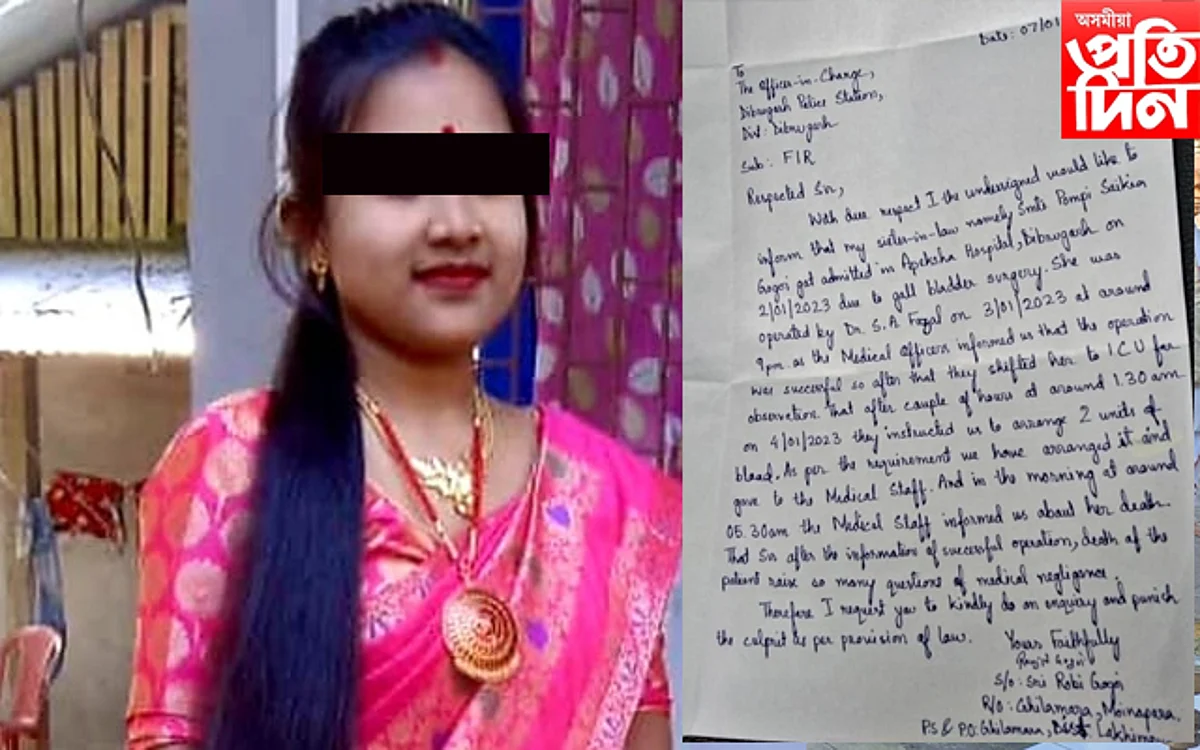 অসমীয়া
প্ৰতি
দিন
Date: 07/01
To
The Officer-in-Charge,
Dibrugarh Police Station,
Dist: Dibrugarh
Sub: FIR
Respected Sir,
With due respect I the undersigned would like to
inform that my sister-in-law namely Smti Pompi Saikia
Gogoi got admitted in Apeksha Hospital, Dibrugarh on
2/01/2023 due to gall bladder surgery. She was
operated by Dr. S.A Fazal on 3/01/2023 at around
9pm. as the Medical Officers informed us that the operation
was successful so after that they shifted her to ICU for
observation. That after couple of hours at around 1.30 am
on 4/01/2023 they instructed us to arrange 2 units of
blood. As per the requirement we have arranged it and
gave to the Medical Staff. And in the morning at around
05.30am the Medical Staff informed us about her death.
That Sir after the information of successful operation, death of the
patient raise so many questions of medical negligance.
Therefore I request you to kindly do an enquiry and punish
the culprit as per provision of law.
Yours Faithfully
Gogoi
S/o: Sri Robi Gogoi
R/o: Ghilamara, Moinapara,
P.S & P.O: Ghilamara, Dist